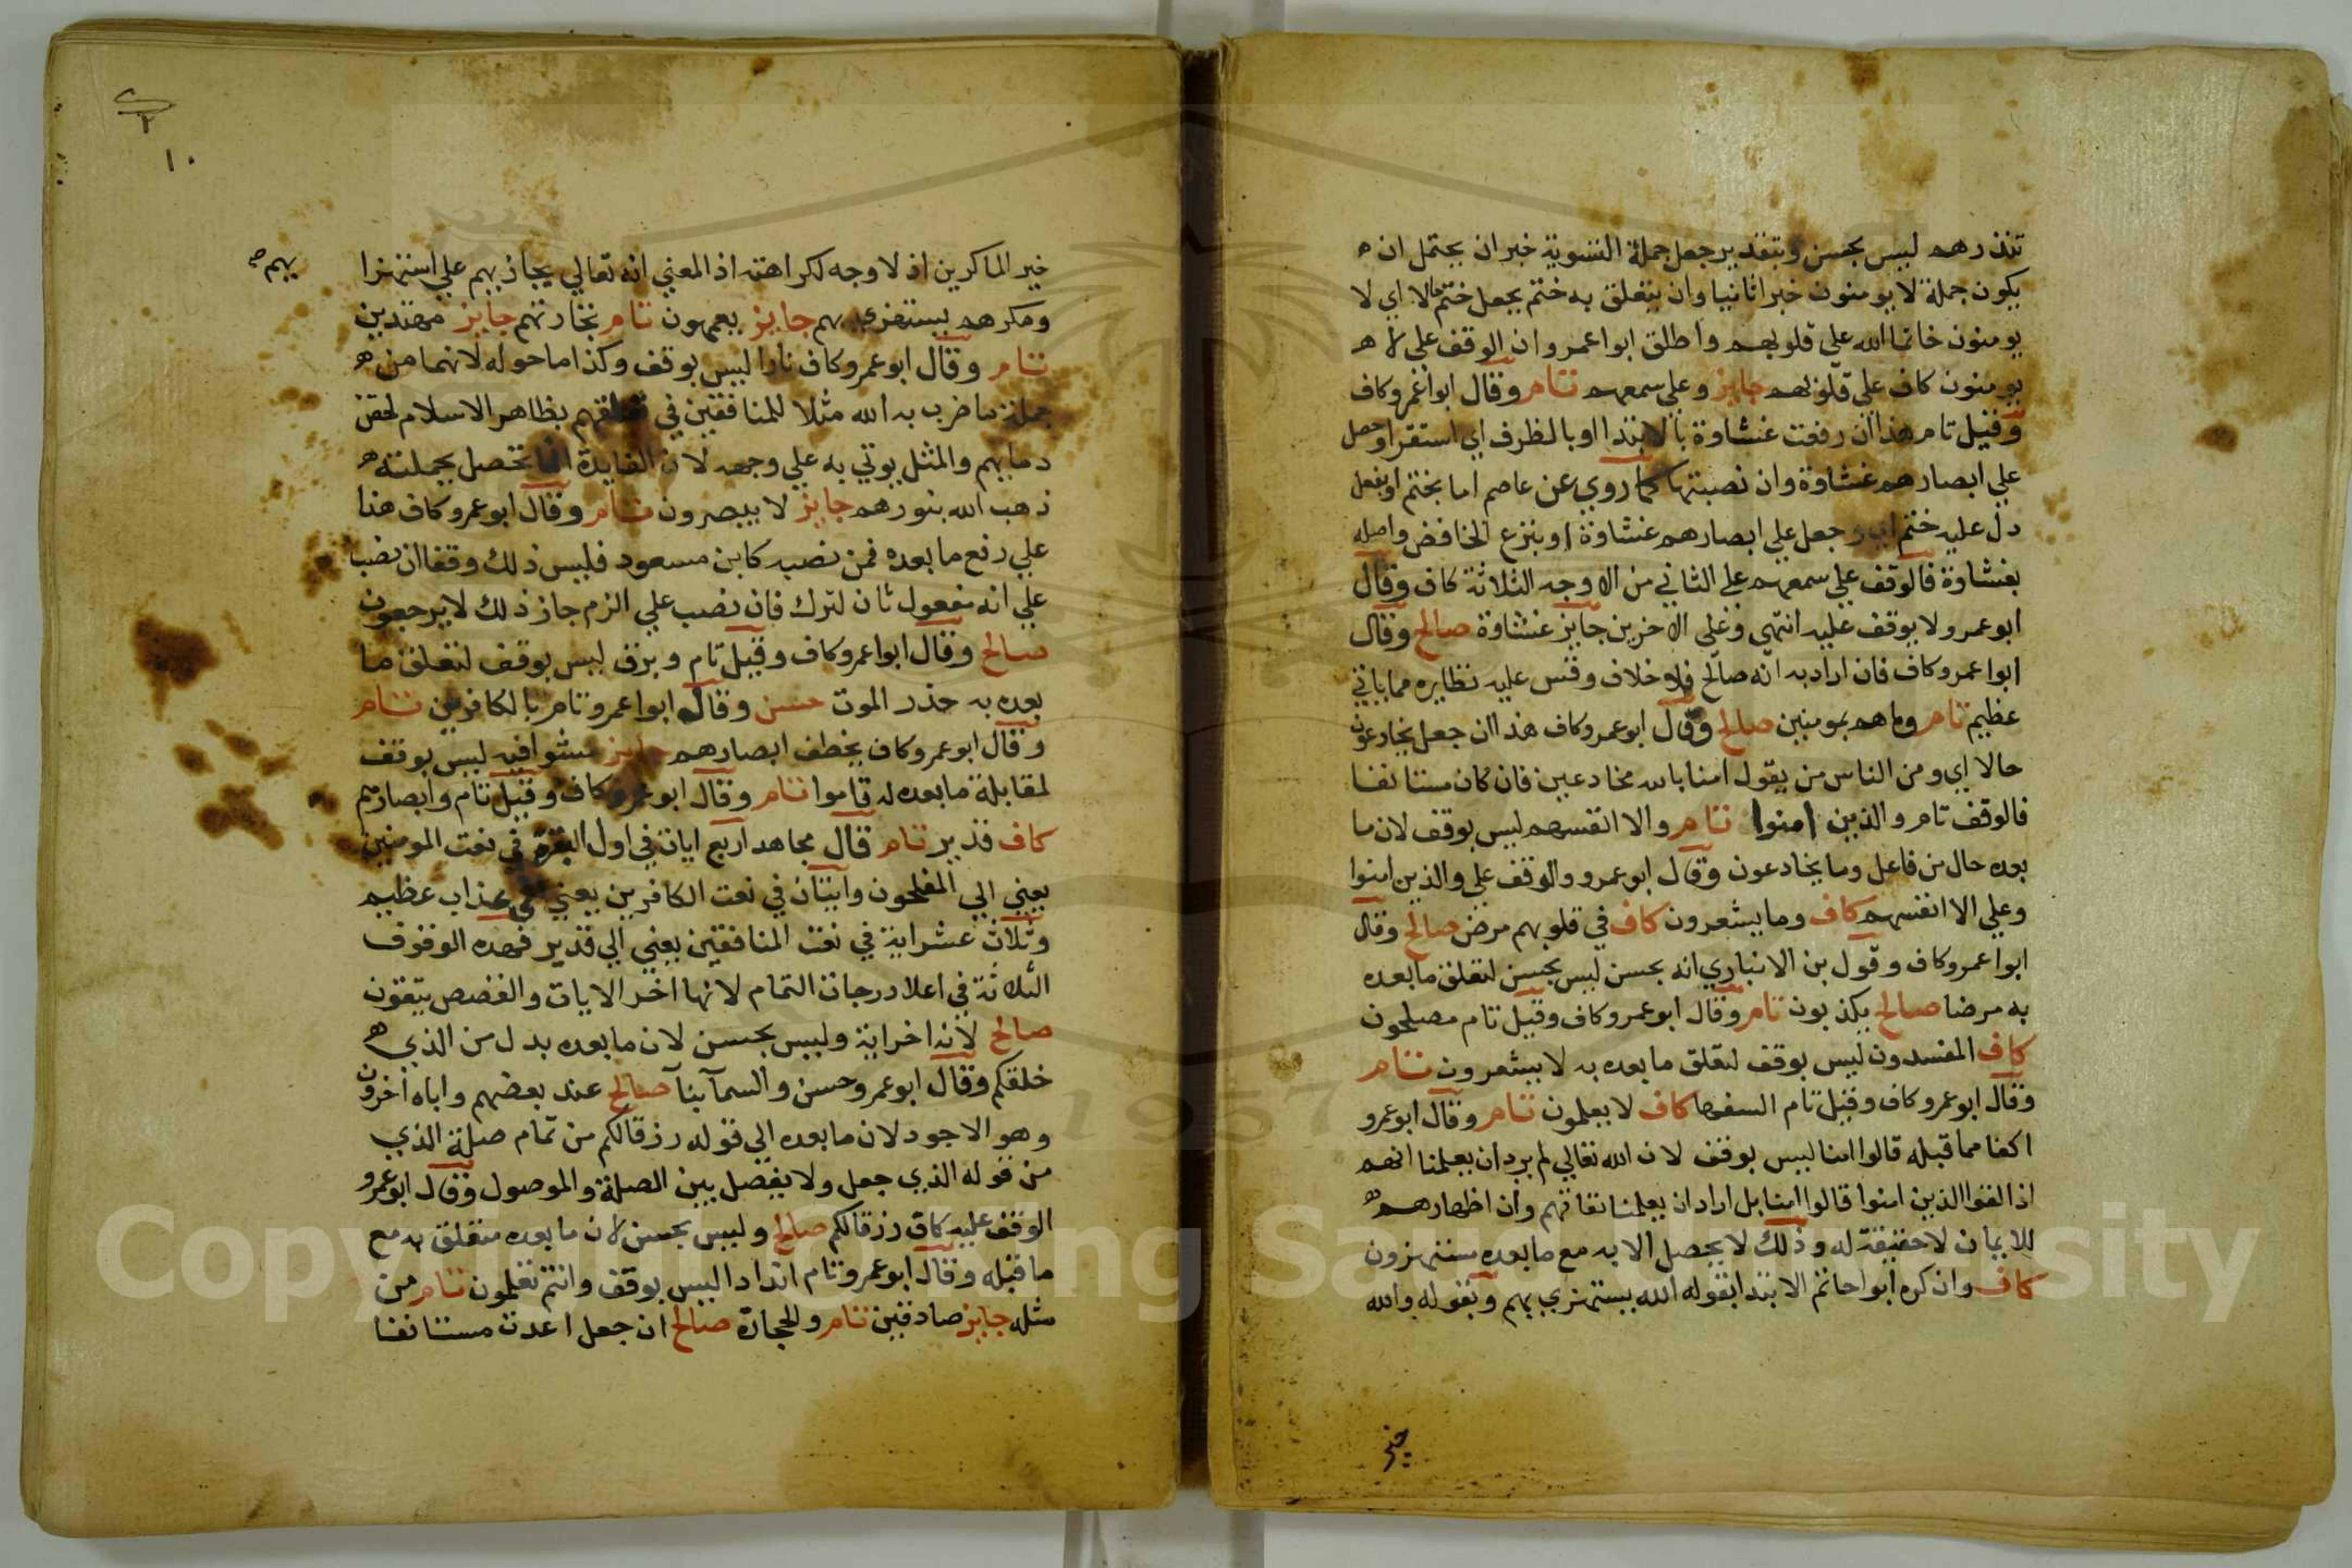 تنذرهم ليس بحسن وبتقدير جعل جملة التسوية خبران يحتمل ان ه
يكون جملة لا يومنون خبرا ثانيا وان يتعلق به ختم يجعل ختم حالا اي لا
يومنون خاتما الله على قلوبهم واطلق ابوا عمرو ان الوقف على لا ه
يومنون كاف على قلوبهم جايز وعلى سمعهم تام وقال ابوا عمرو كاف
وقيل تام هذا ان رفعت غشاوة بالابتدا او بالظرف اي استقر او حصل
علي ابصارهم غشاوة وان نصبتها كما روي عن عاصم اما بختم او بفعل
دل عليه ختم اي وجعل علي ابصارهم غشاوة او بنزع الخافض واصله
بغشاوة فالوقف علي سمعهم على الثاني من الاوجه الثلاثة كاف وقال
ابو عمرو لا يوقف عليه انتهى وعلى الاخرين جايز غشاوة صالح وقال
ابوا عمرو كاف فان اراد به انه صالح فلا خلاف وقس عليه نظايره مما ياتي
عظيم تام وما هم بمومنين صالح وقال ابو عمرو كاف هذا ان جعل يخادعون
حالا اي ومن الناس من يقول امنا بالله مخادعين فان كان مستانفا
فالوقف تام والذين امنوا تام والا انفسهم ليس بوقف لان ما
بعده حال من فاعل وما يخادعون وقال ابو عمرو والوقف علي والذين امنوا
وعلي الا انفسهم كاف وما يشعرون كاف في قلوبهم مرض صالح وقال
ابوا عمرو كاف وقول بن الانباري انه بحسن ليس بحسن لتعلق ما بعده
به مرضا صالح يكذبون تام وقال ابو عمرو كاف وقيل تام مصلحون
كاف المفسدون ليس بوقف لتعلق ما بعده به لا يشعرون تام
وقال ابو عمرو كاف وقيل تام السفها كاف لا يعلمون تام وقال ابو عمرو
اكفا مما قبله قالوا امنا ليس بوقف لان الله تعالي لم يرد ان يعلمنا انهم
اذا لقوا الذين امنوا قالوا امنا بل اراد ان يعلمنا نفاقهم وان اظهارهم ه
للايمان لا حقيقة له وذلك لا يحصل الا به مع ما بعده مستهزون
كاف وان كره ابوا حاتم الابتدا بقوله الله يستهزي بهم وبقوله والله
خير
١٠
خير الماكرين اذ لا وجه لكراهته اذ المعني انه تعالي يجازيهم علي استهزا
يهم
ومكرهم يستهزي بهم جايز يعمهون تام تجارتهم جايز مهتدين
تام وقال ابو عمرو كاف نارا ليس بوقف وكذا ما حوله لانهما من ه
جملة ما ضرب به الله مثلا للمنافقين في تعلقهم بظاهر الاسلام لحقن
دمايهم والمثل يوتي به علي وجهه لان الفايدة انما تحصل بجملته ه
ذهب الله بنورهم جايز لا يبصرون تام وقال ابو عمرو كاف هذا
علي رفع ما بعده فمن نصبه كابن مسعود فليس ذلك وقفا ان نصب
علي انه مفعول ثان لترك فان نصب علي الزم جاز ذلك لا يرجعون
صالح وقال ابوا عمرو كاف وقيل تام وبرق ليس بوقف لتعلق ما
بعده به حذر الموت حسن وقال ابوا عمرو تام بالكافرين تام
وقال ابو عمرو كاف يخطف ابصارهم جايز مشوا فيه ليس بوقف
لمقابلة ما بعده له قاموا تام وقال ابو عمرو كاف وقيل تام وابصارهم
كاف قدير تام قال مجاهد اربع ايات في اول البقرة في نعت المومنين
يعني الي المفلحون وايتان في نعت الكافرين يعني الي عذاب عظيم
وثلاث عشر اية في نعت المنافقين يعني الي قدير فهذه الوقوف
الثلاثة في اعلا درجات التمام لانها اخر الايات والقصص يتقون
صالح لانه اخر اية وليس بحسن لان ما بعده بدل من الذي ه
خلقكم وقال ابو عمرو حسن والسمآ بنآ صالح عند بعضهم واباه اخرون
وهو الاجود لان ما بعده الي قوله رزقا لكم من تمام صلة الذي
من قوله الذي جعل ولا يفصل بين الصلة والموصول وقال ابو عمرو
الوقف عليه كاف رزقا لكم صالح وليس بحسن لان ما بعده متعلق به مع
ما قبله وقال ابو عمرو تام اندادا ليس بوقف وانتم تعلمون تام من
مثله جايز صادقين تام والحجارة صالح ان جعل اعدت مستانفا
Copyright © King Saud University
1957